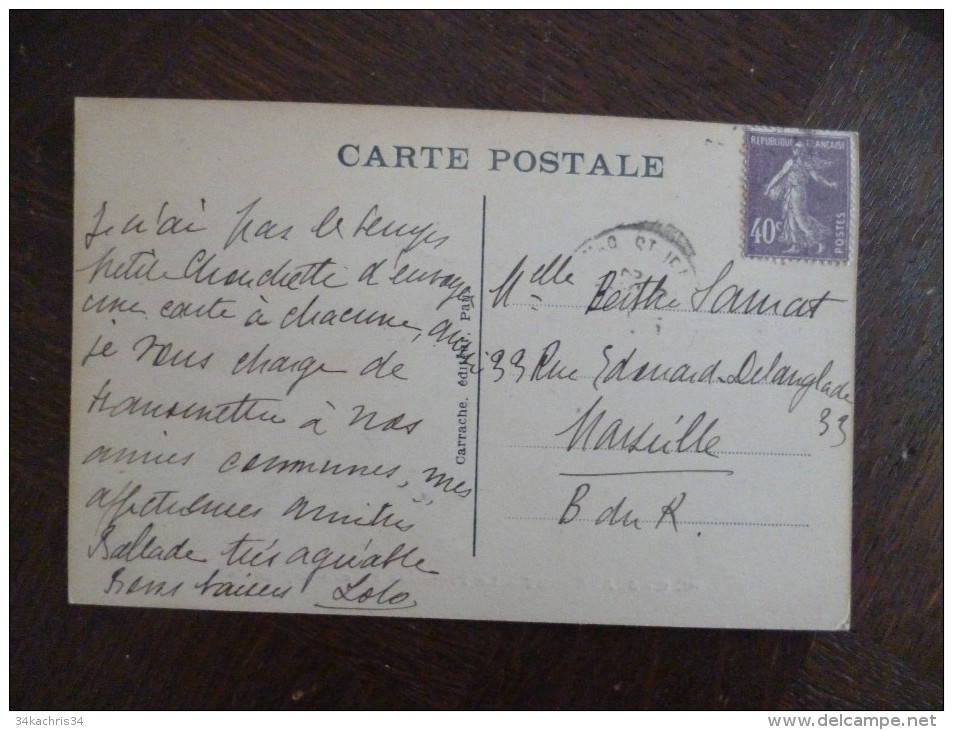 CARTE POSTALE
REPUBLIQUE FRANCAISE
40c
POSTES
Je n'ai pas le temps
petite Chouchette d'envoyer
une carte à chacune, aussi
je vous charge de
transmettre à nos
amies communes, mes
affectueuses amitiés
Ballade très agréable
Bons baisers Lolo
Carrache. éditeur. Pau
Melle Berthe Samat
33 Rue Edouard Delanglade
33
Marseille
B du R
34kachris34
www.delcampe.net